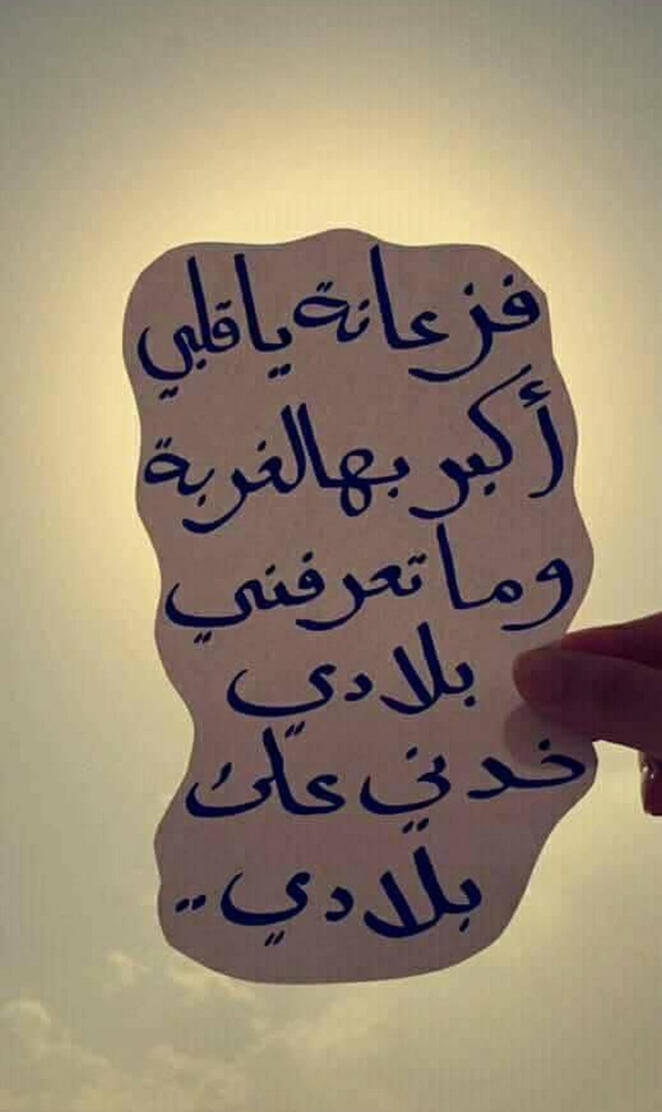 فزعانة يا قلبي
أكبر بهالغربة
وما تعرفني
بلادي
خدني على
بلادي..